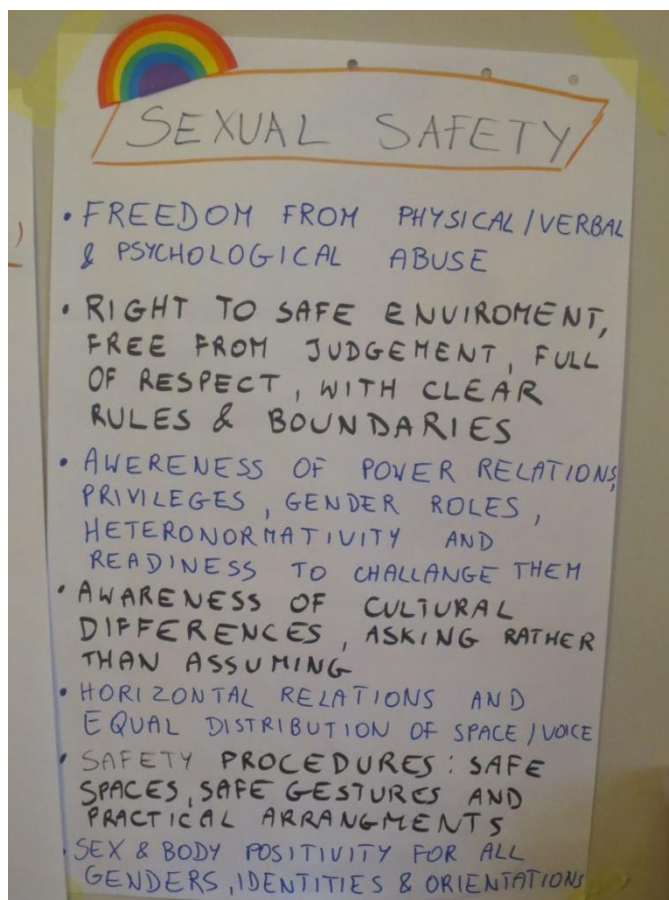 SEXUAL SAFETY
• FREEDOM FROM PHYSICAL/VERBAL
& PSYCHOLOGICAL ABUSE
• RIGHT TO SAFE ENVIROMENT,
FREE FROM JUDGEMENT, FULL
OF RESPECT, WITH CLEAR
RULES & BOUNDARIES
• AWERENESS OF POWER RELATIONS,
PRIVILEGES, GENDER ROLES,
HETERONORMATIVITY AND
READINESS TO CHALLANGE THEM
• AWARENESS OF CULTURAL
DIFFERENCES, ASKING RATHER
THAN ASSUMING
• HORIZONTAL RELATIONS AND
EQUAL DISTRIBUTION OF SPACE/VOICE
• SAFETY PROCEDURES: SAFE
SPACES, SAFE GESTURES AND
PRACTICAL ARRANGMENTS
• SEX & BODY POSITIVITY FOR ALL
GENDERS, IDENTITIES & ORIENTATIONS